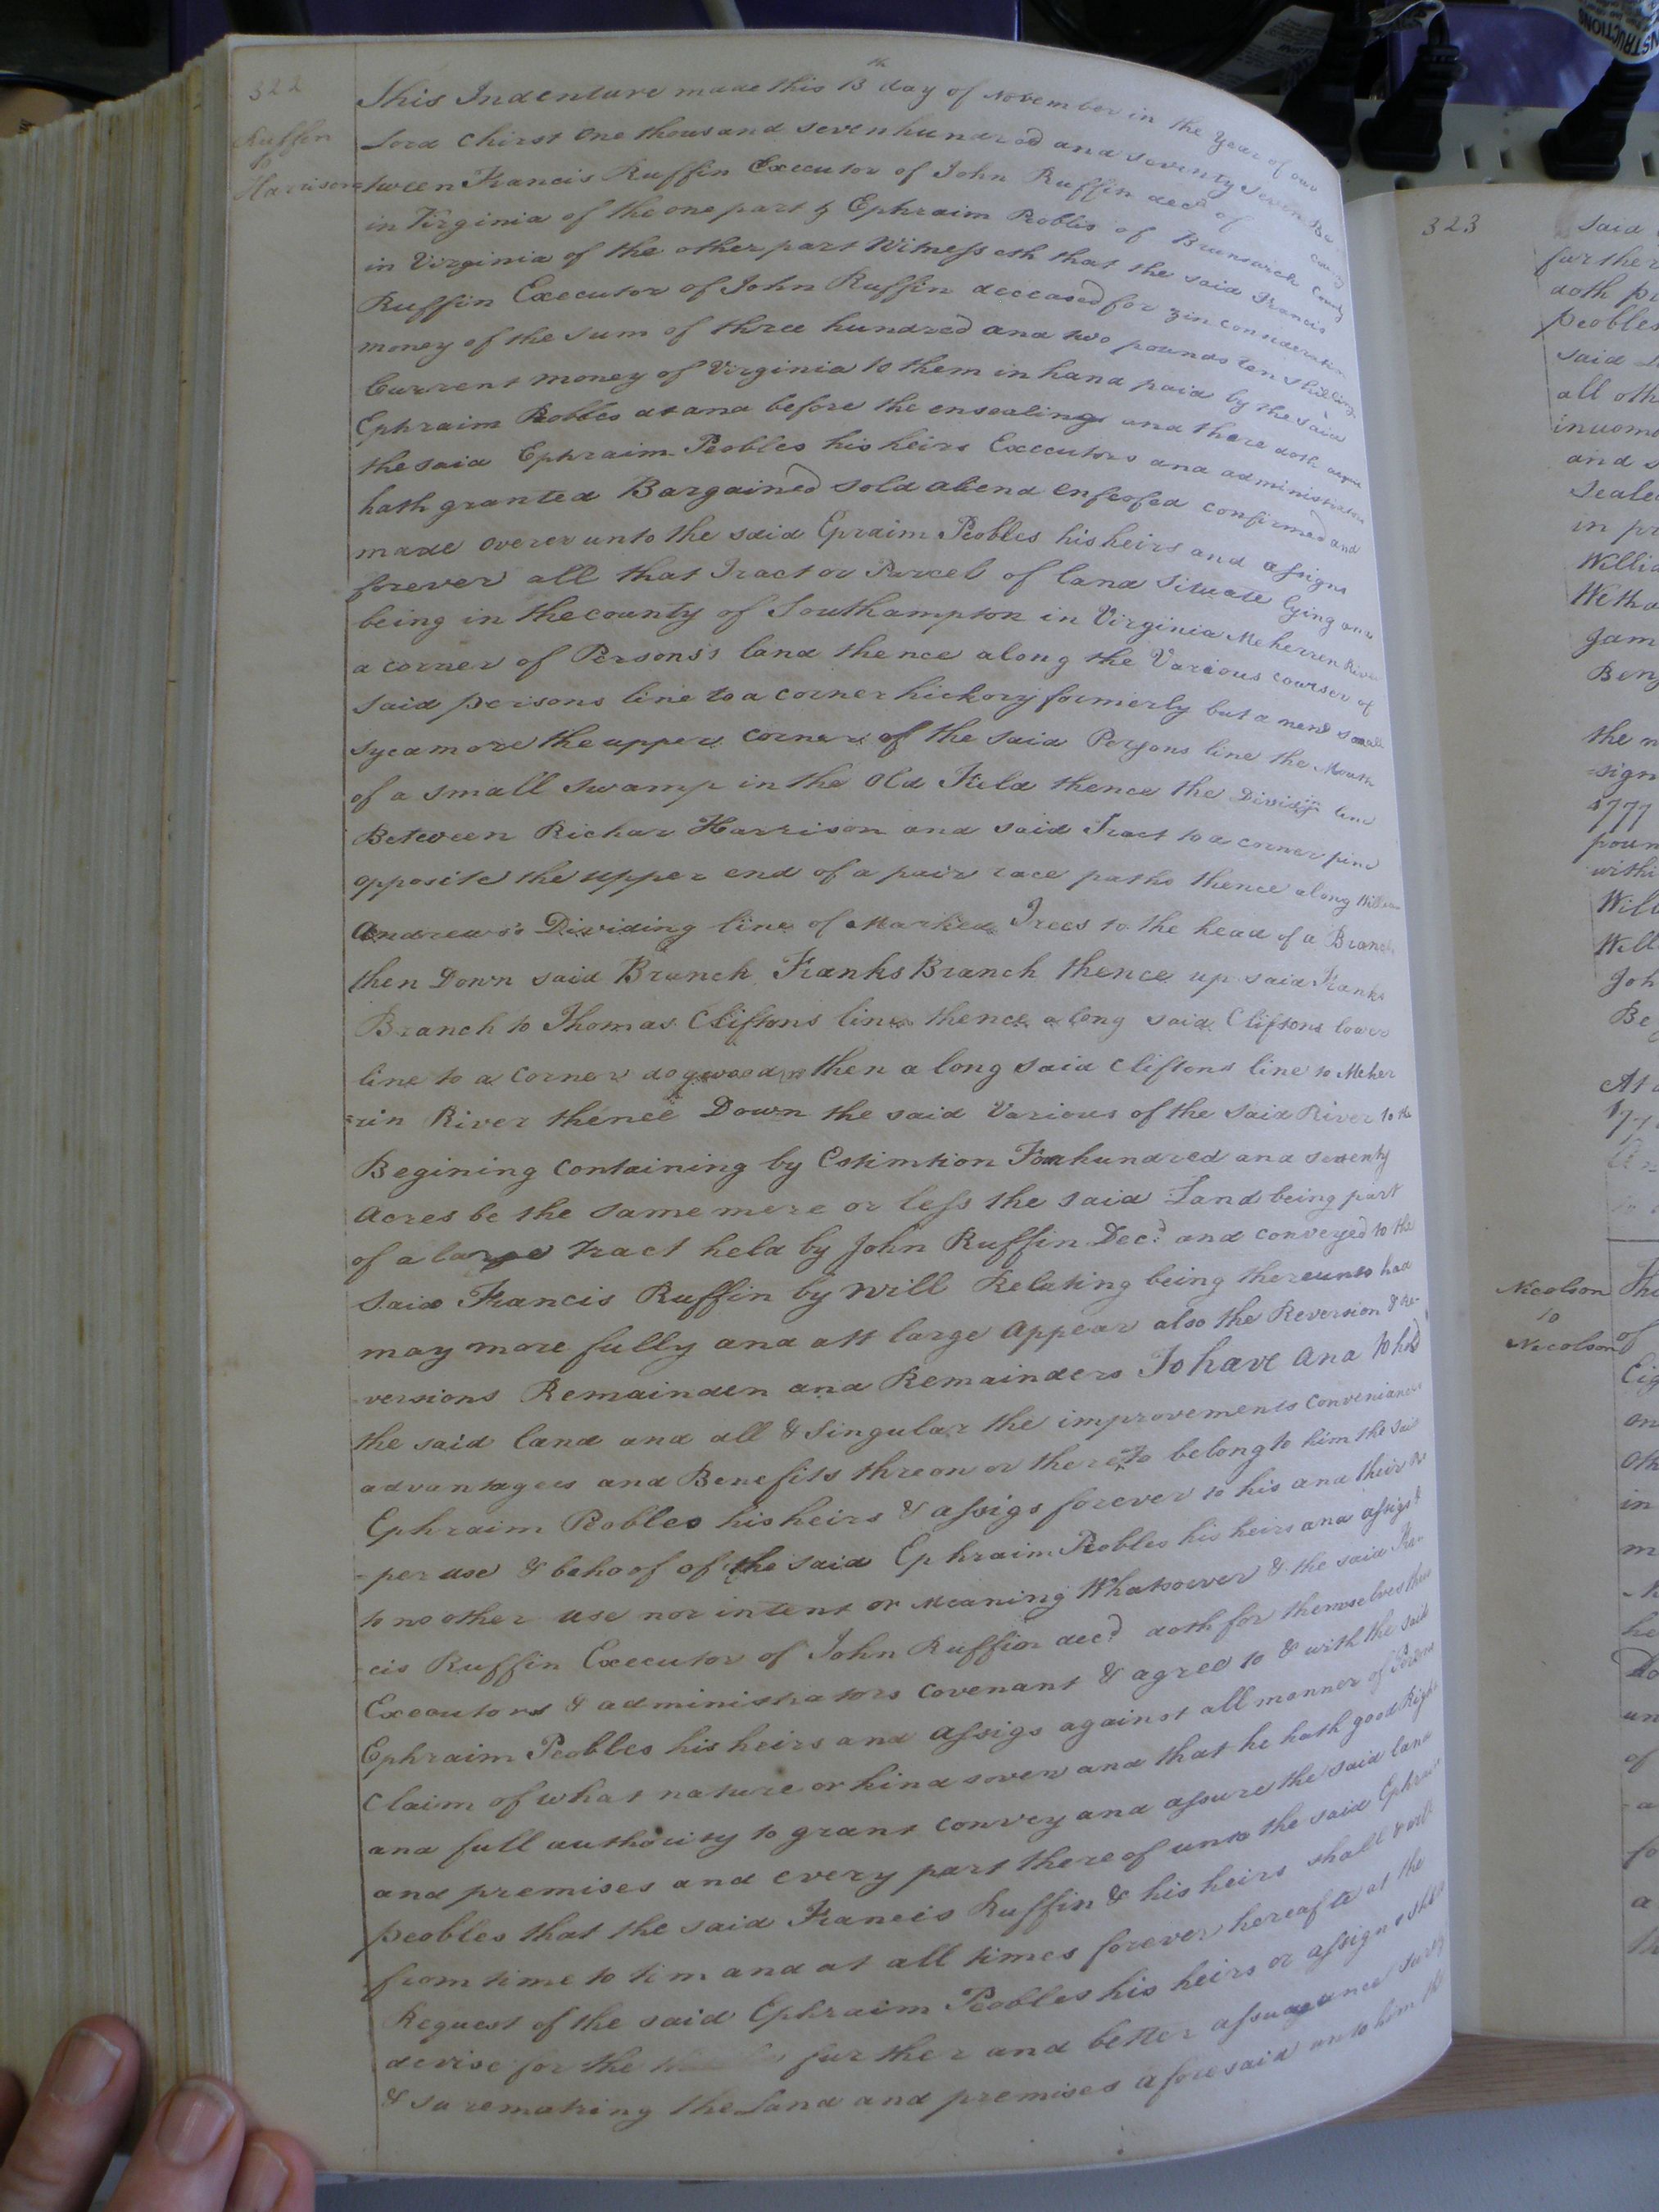 322
Ruffin
to
Harrison
This Indenture made this 13th day of November in the Year of our
Lord Chirst One thousand seven hundred and seventy seven Be
tween Francis Ruffin Executor of John Ruffin decd of County
in Virginia of the one part & Ephraim Peobles of Brunswick County
in Virginia of the other part Witnesseth that the said Francis
Ruffin Executor of John Ruffin deceased for & in consideration
money of the sum of three hundred and two pounds ten shillings
Current money of Virginia to them in hand paid by the said
Ephraim Peobles at and before the ensealings and there doth
the said Ephraim Peobles his heirs Executors and administrators
hath granted Bargained sold aliend enfeofed confirmed and
made overer unto the said Epraim Peobles his heirs and assigns
forever all that Tract or Parcel of land Situate lying and
being in the county of Southampton in Virginia Meherren River
a corner of Persons's land thence along the Various courser of
said persons line to a corner hickory formerly but a new small
sycamore the upper corner of the said Persons line the Mouth
of a small swamp in the Old Field thence the Division line
Between Richar Harrison and said Tract to a corner pine
opposite the upper end of a pair race paths thence along William
Andrews's Dividing line of Marked Trees to the head of a Branch
then Down said Branch Franks Branch thence up said Franks
Branch to Thomas Cliftons line thence along said Cliftons lower
line to a Corner dogwood then a long said Cliftons line to Meher
=rin River thence Down the said Various of the said River to the
Begining Containing by Estimtion Fou hundred and seventy
Acres be the same mere or less the said Land being part
of a large tract held by John Ruffin Decd. and conveyed to the
Said Francis Ruffin by Will Relating being thereunto had
may more fully and att large Appear also the Reversion & Re-
-versions Remainden and Remainders To have And to hold
the said land and all & singular the improvements Conveniances
advantagees and Benefits threon or thereto belong to him the said
Ephraim Peobles his heirs & assigs forever to his and their Pro
-per use & behoof of the said Ephraim Peobles his heirs and assigs &
to no other use nor intent or Meaning Whatsoever & the said Fran
cis Ruffin Executor of John Ruffin decd doth for themselves their
Executors & administrators Covenant & agree to & with the said
Ephraim Peobles his heirs and Assigs against all manner of Persons
Claim of what nature or kind sover and that he hath good Right
and full authority to grant convey and assure the said land
and premises and every part thereof unto the said Ephraim
peobles that the said Francis Ruffin & his heirs shall & will
from time to tim and at all times forever hereafte at the
Request of the said Ephraim Peobles his heirs or assigns shall
devise for the further and better assurance surty
& suremaking the Land and premises aforesaid unto him the
323
Said
further
doth
peobles
said
all oth
and s
Seale
in pr
Willia
the
-sign
1777
poun
withi
Will
Will
Joh
Be
At
Nicolson
to
Nicolson
of
on
oth
in
he
of
a